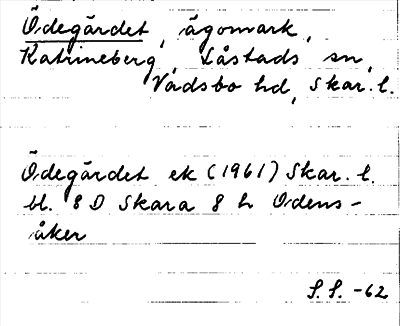 Ödegärdet, ägomark,
Katrineberg, Låstads sn,
Vadsbo hd, Skar. l.
Ödegärdet ek (1961) Skar. l.
bl. 8 D Skara 8 h Odens-
åker
S.S. -62